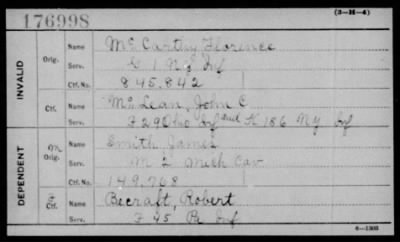 176998
(3-H-4)
INVALID
Orig.
Name Mc Carthy Florence
Serv. G 1 N.Y. Inf
Ctf. No. 845,842
Ctf.
Name Mc Lean, John C
Serv. F 29 Ohio Inf and K 186 NY Inf
DEPENDENT
M Orig.
Name Smith James
Serv. M 2 Mich Cav
Ctf. No. 149,768
F Ctf.
Name Becraft, Robert
Serv. F 45 Pa Inf
6-1303